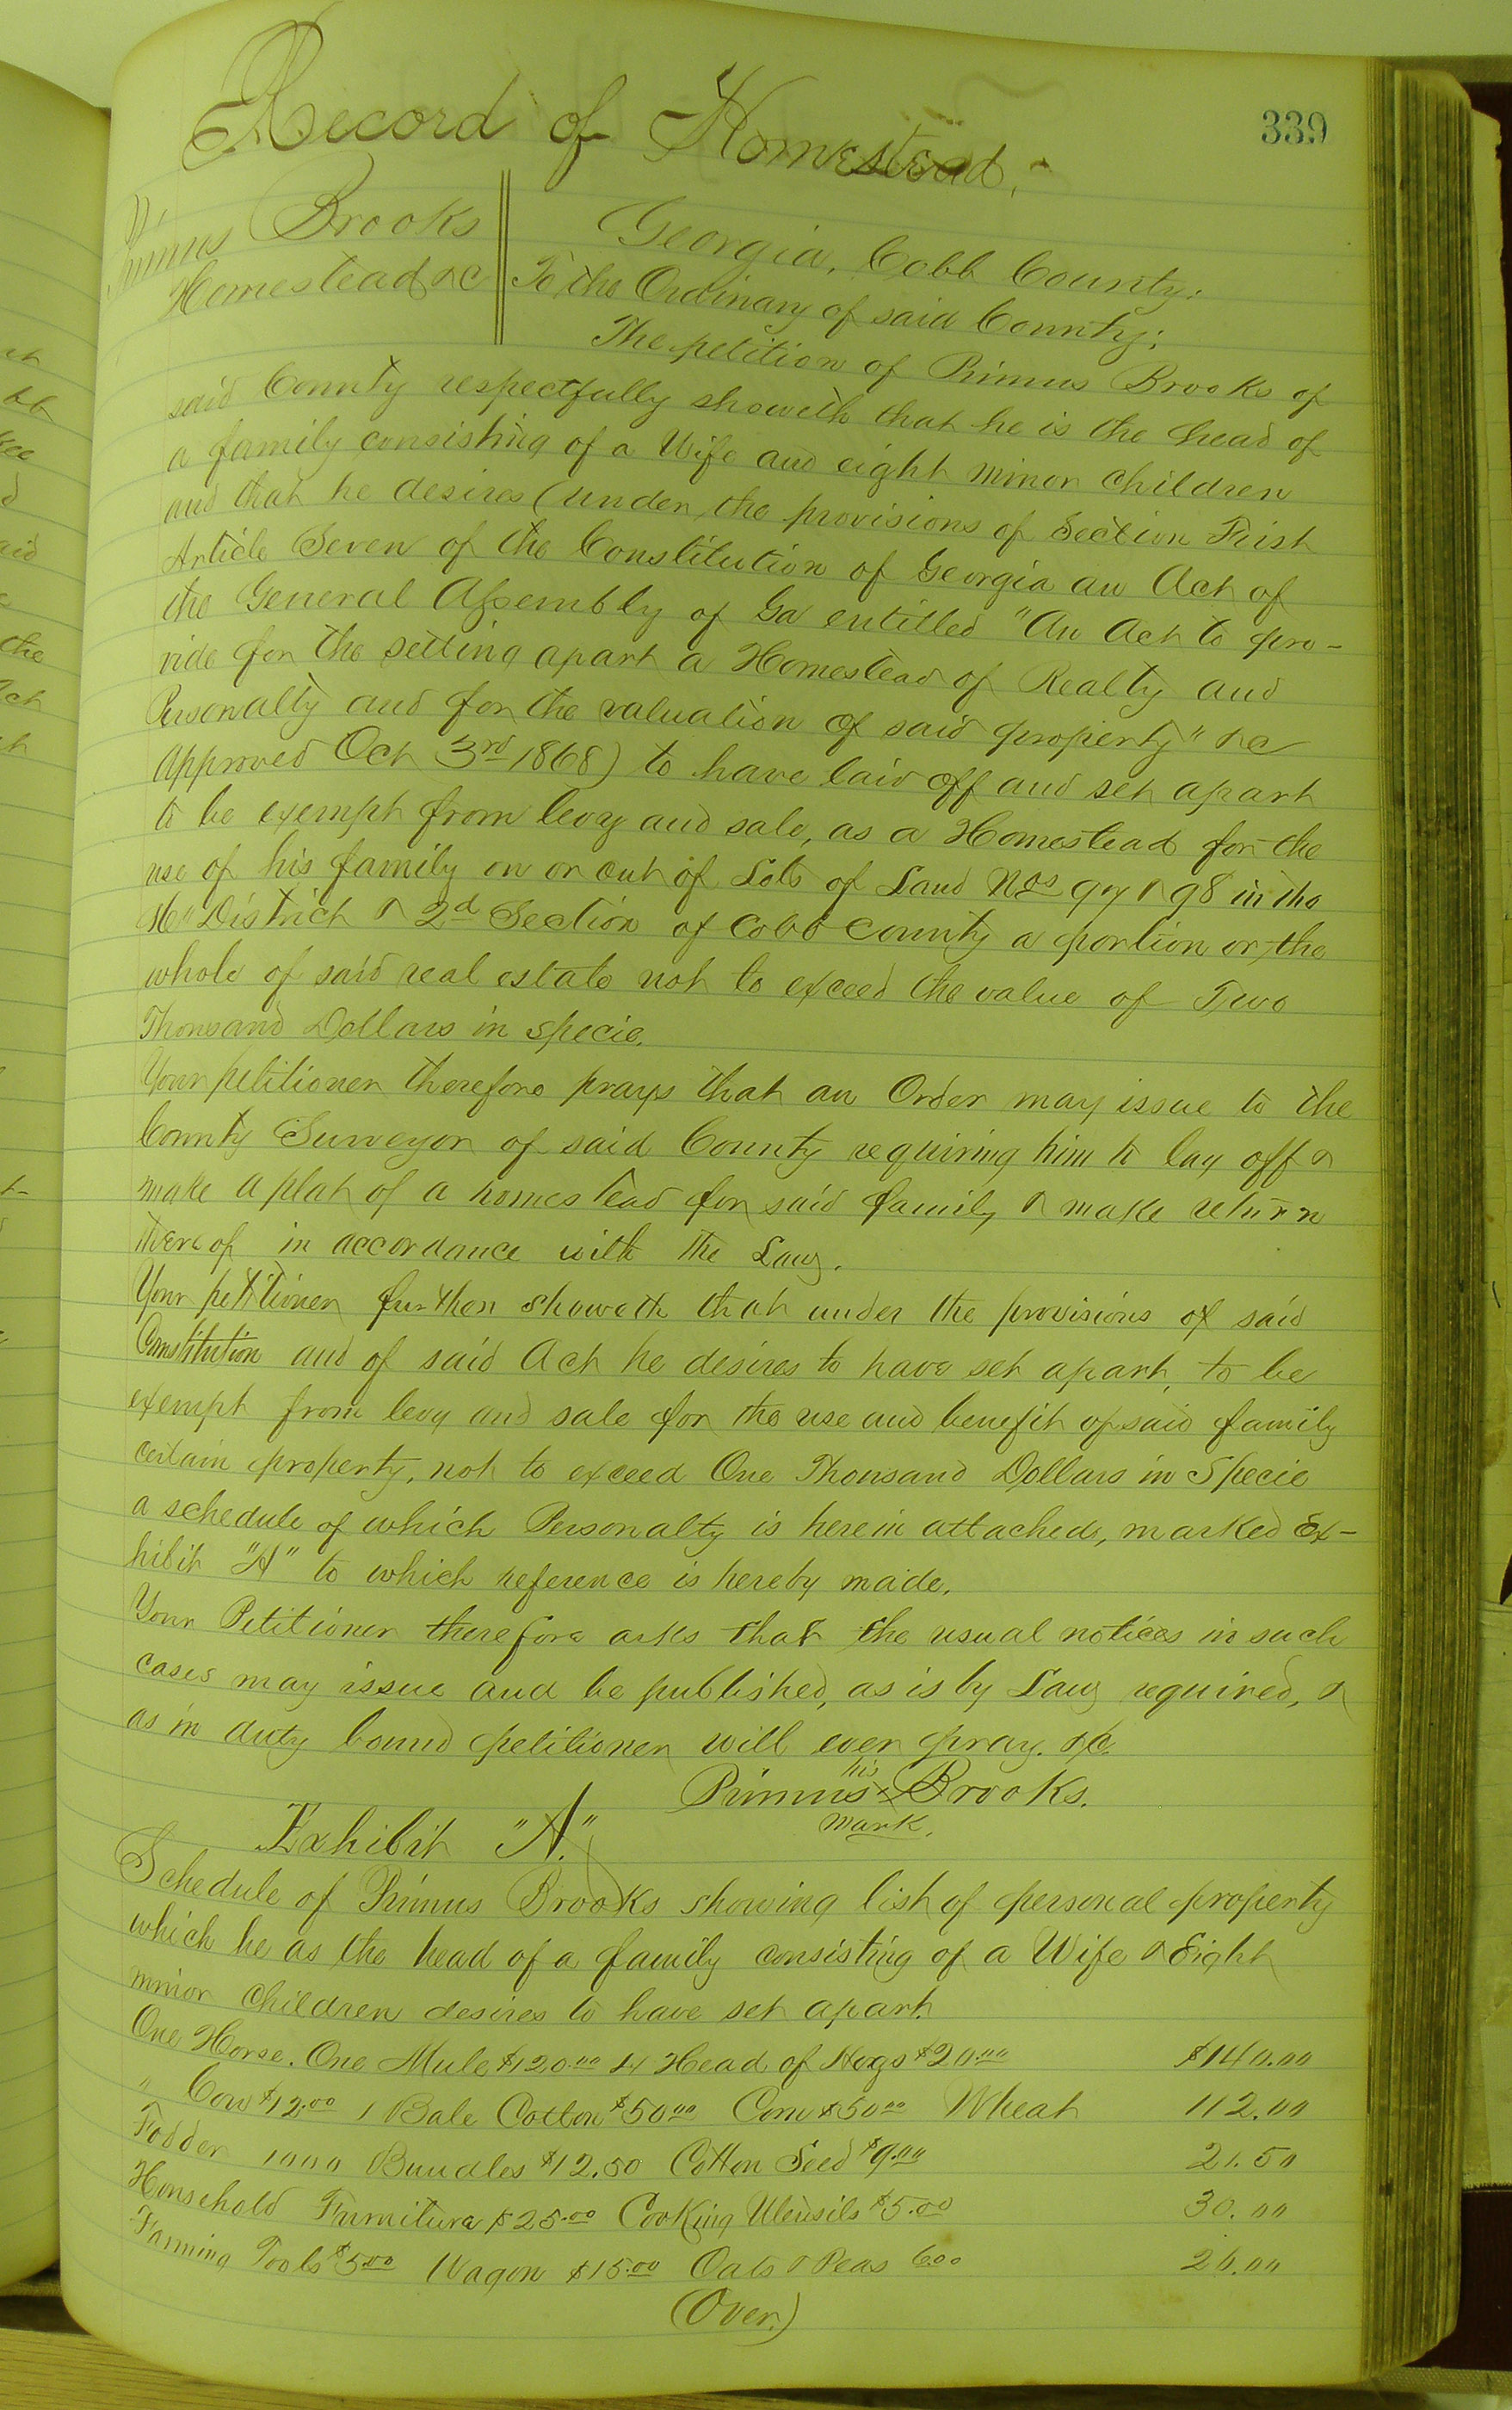 339
Record of Homestead.
Primus Brooks
Homestead &c
Georgia, Cobb County.
To the Ordinary of said County;
The petition of Primus Brooks of
said County respectfully showeth that he is the head of
a family consisting of a Wife and eight minor children
and that he desires (under the provisions of Section First
Article Seven of the Constitution of Georgia an Act of
the General Assembly of Ga entitled "An Act to pro-
vide for the setting apart a Homestead of Realty and
Personalty and for the valuation of said property" &c
Approved Oct 3rd 1868) to have laid off and set apart
to be exempt from levy and sale, as a Homestead for the
use of his family on or out of Lots of Land Nos 97 & 98 in the
District & 2d Section of Cobb County a portion or the
whole of said real estate not to exceed the value of Two
Thousand Dollars in specie.
Your petitioner therefore prays that an Order may issue to the
County Surveyor of said County requiring him to lay off &
make a plat of a homestead for said family & make return
thereof in accordance with the Law.
Your petitioner further showeth that under the provisions of said
Constitution and of said Act he desires to have set apart, to be
exempt from levy and sale for the use and benefit of said family
certain property, not to exceed One Thousand Dollars in Specie
a schedule of which Personalty is herein attached, marked Ex-
hibit "A" to which reference is hereby made.
Your Petitioner therefore asks that the usual notices in such
cases may issue and be published, as is by Law required, &
as in duty bound petitioner will ever pray. &c.
his
Primus x Brooks.
mark.
Exhibit "A."
Schedule of Primus Brooks showing list of personal property
which he as the head of a family consisting of a Wife & Eight
minor children desires to have set apart.
One Horse. One Mule $120.00 14 Head of Hogs $20.00 $140.00
" Cow $12.00 1 Bale Cotton $50.00 Corn $50.00 Wheat 112.00
Fodder 1000 Bundles $12.50 Cotton Seed $9.00 21.50
Household Furniture $25.00 Cooking Utensils $5.00 30.00
Farming Tools $5.00 Wagon $15.00 Oats & Peas 6.00 26.00
(Over.)